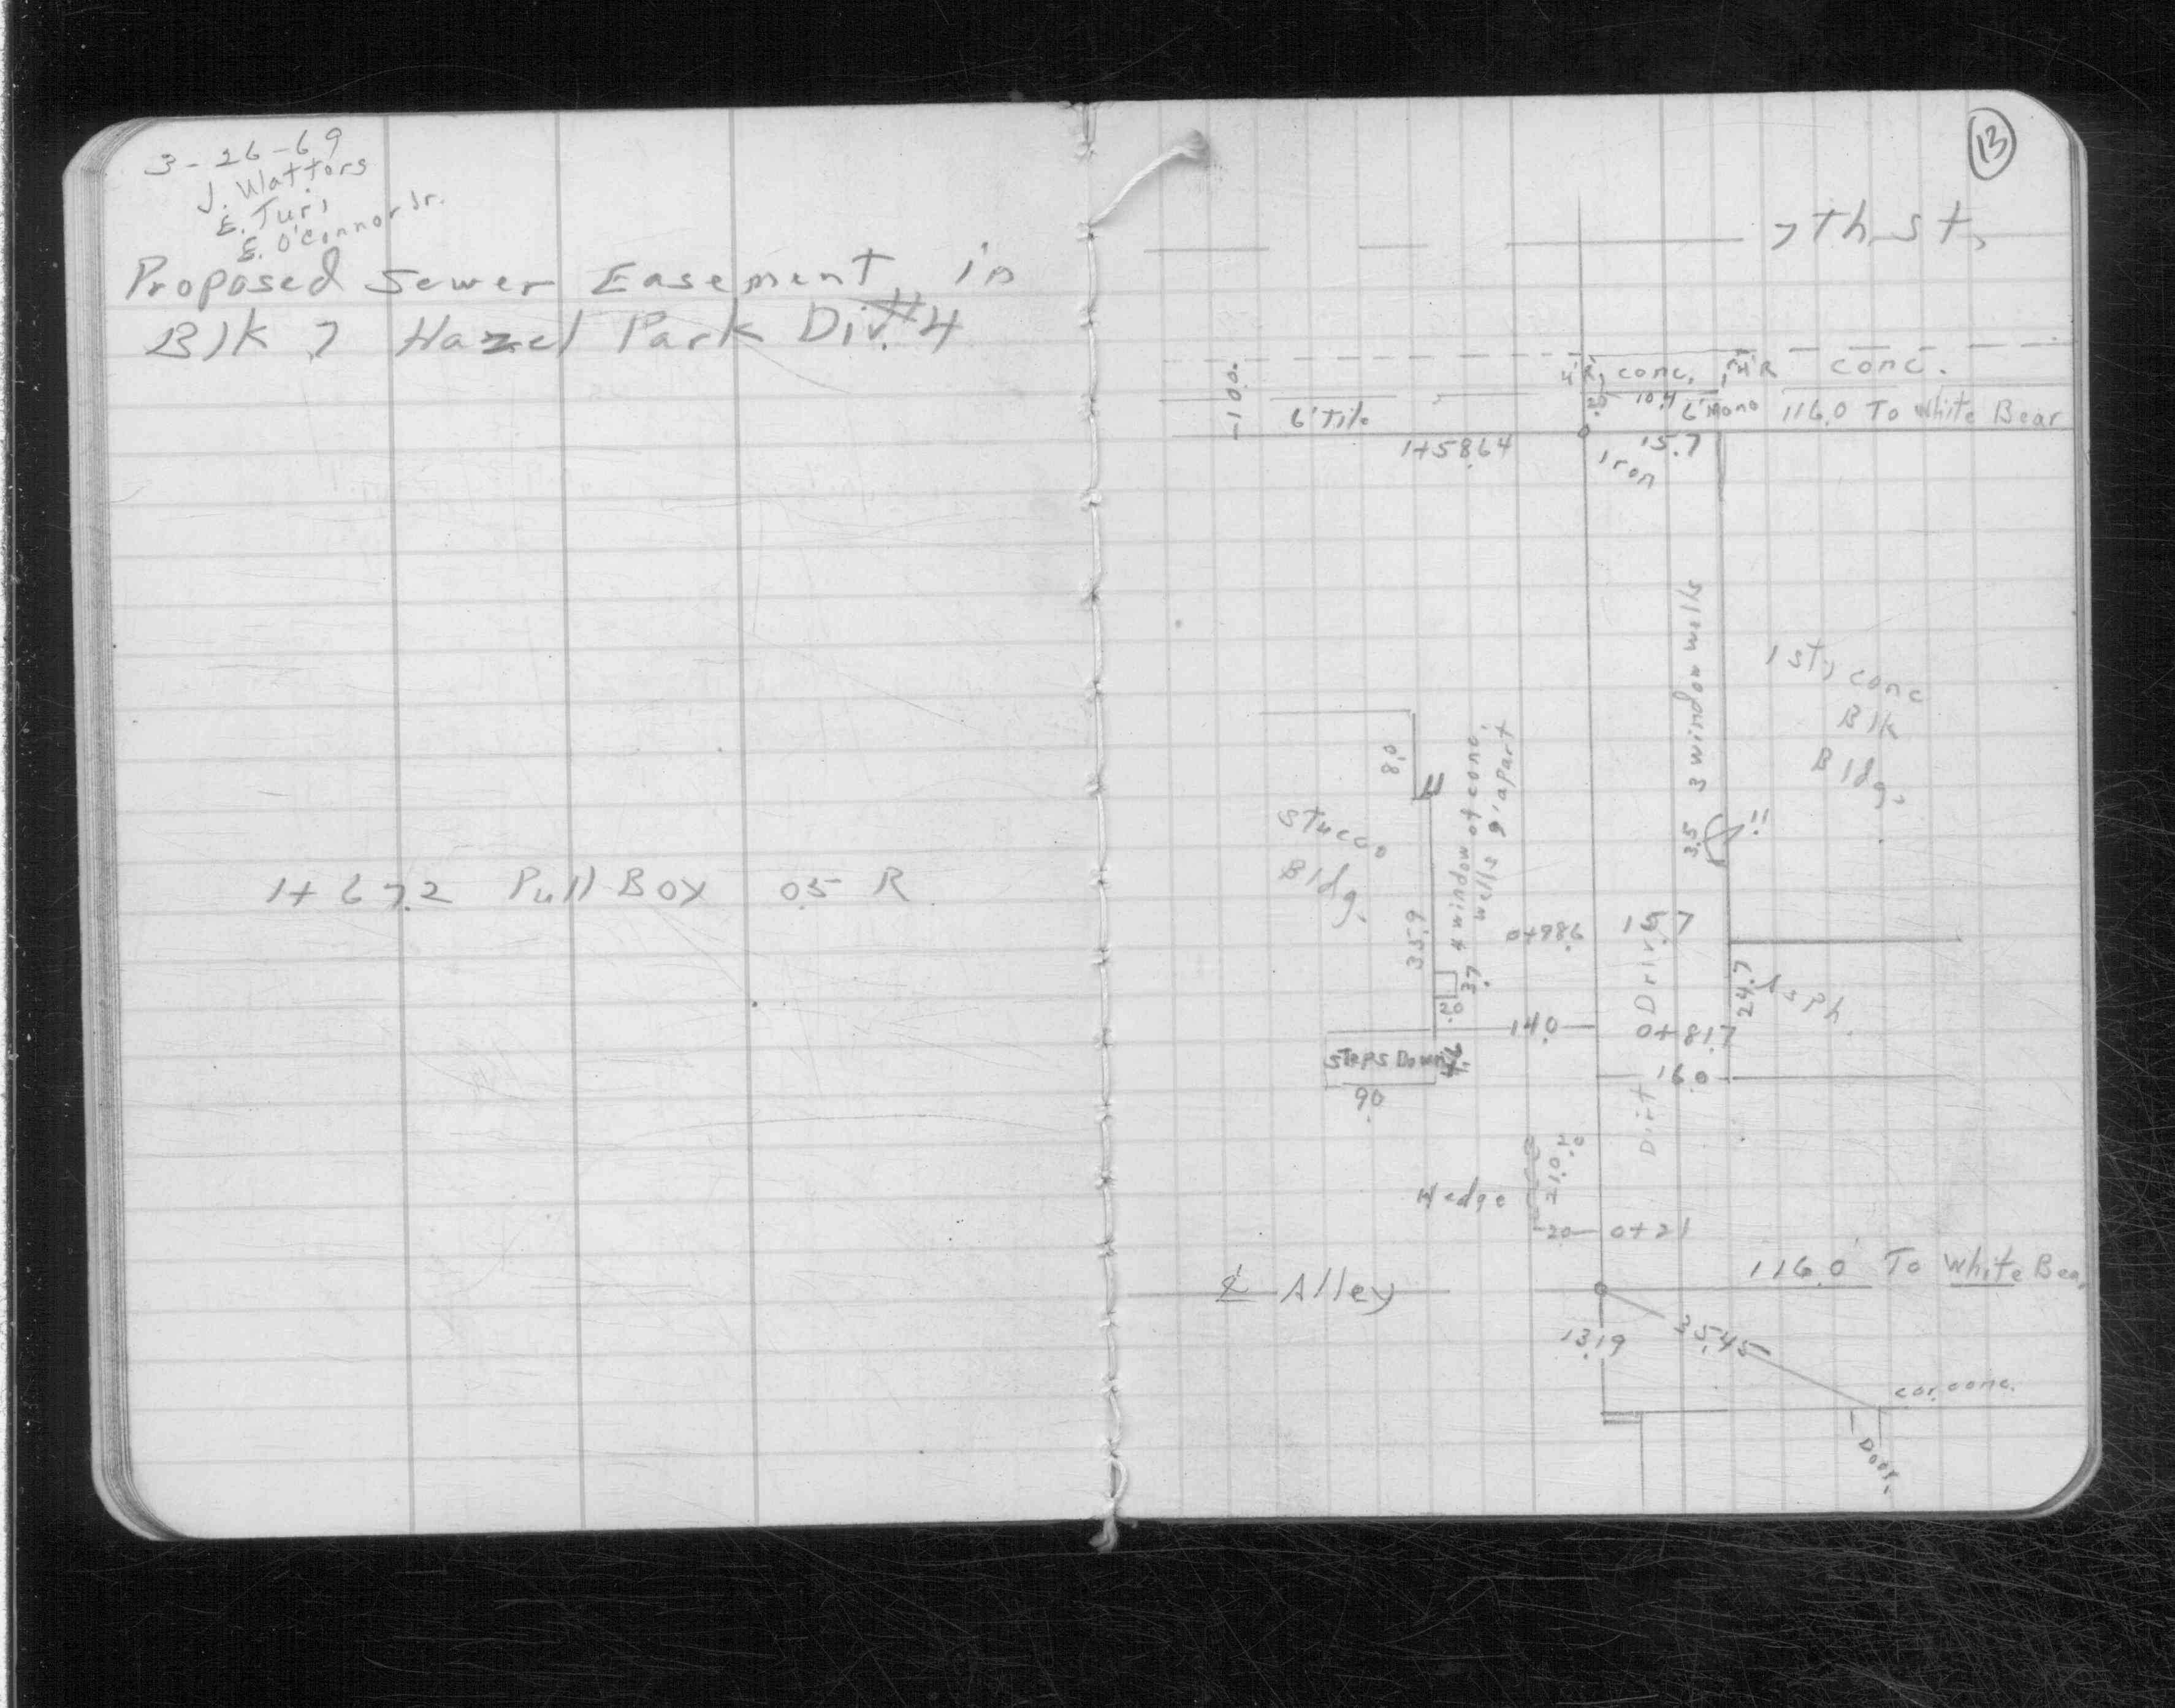 3-26-69
J. Wattors
E. Turi
E. O'Connor Jr.
Proposed Sewer Easement in
Blk 7 Hazel Park Div. #4
1+67.2 Pull Box 0.5 R
13
7th st.
10.0
4'R conc. 4'R conc.
2.0 10.4 6'Mono 116.0 To White Bear
6'Tile
1+58.64 15.7
Iron
3 window wells
1 sty conc
Blk
Bldg.
8.0
4 window of conc.
wells 9' apart
Stucco
Bldg.
3.5 "
35.9
0+98.6 15.7
3.7
2.0
24.7
Asph.
Dirt Drive
14.0 0+81.7
Steps Down 4.6
16.0
9.0
2.0
21.0
Hedge
2.0 0+21
116.0' To White Bear
℄ Alley
13.19 35.45
cor. conc.
Door.